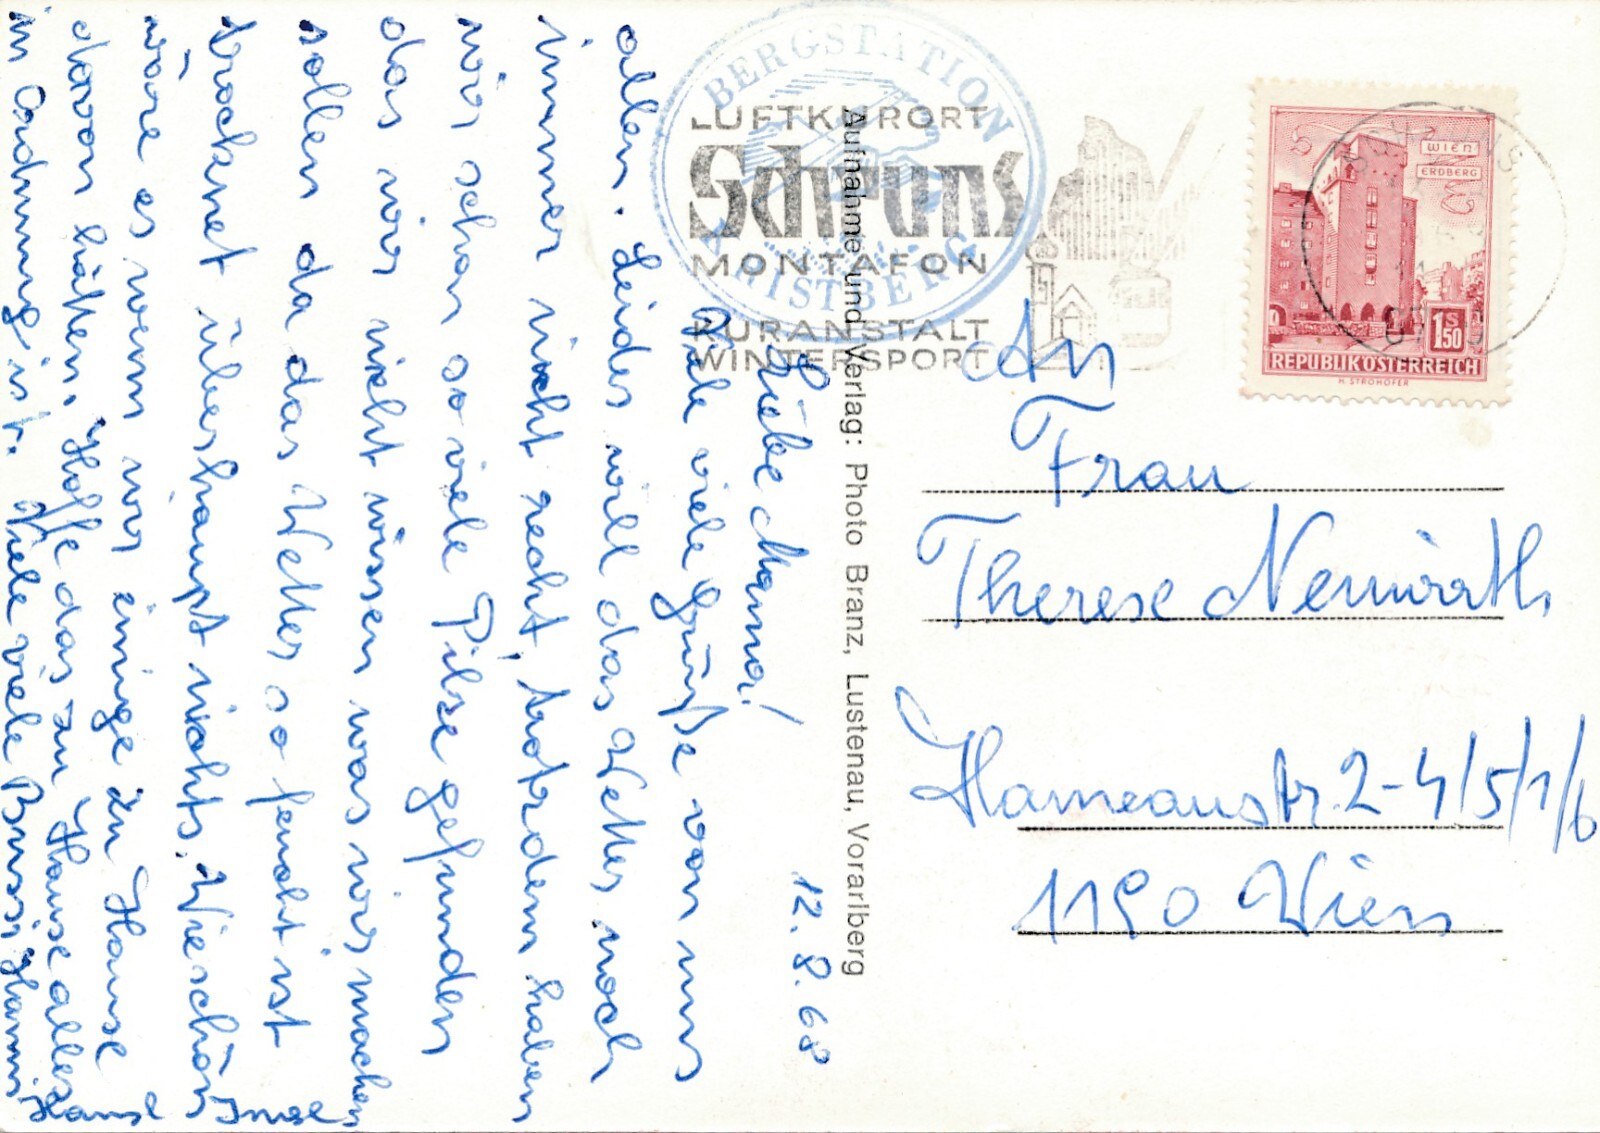 12.8.68
Liebe Mama!
Viele viele Grüße von uns
allen. Leider will das Wetter noch
immer nicht recht, trotzdem haben
wir schon so viele Pilze gefunden
das wir nicht wissen was wir machen
sollen da das Wetter so feucht ist
trocknet überhaupt nichts. Wie schön
wäre es wenn wir einige zu Hause
davon hätten. Hoffe das zu Hause alles
in Ordnung ist. Viele viele Bussi Hanni
Hansl
Inge
Aufnahme und Verlag: Photo Branz, Lustenau, Vorarlberg
BERGSTATION
KRISTBERG
LUFTKURORT
Schruns
MONTAFON
KURANSTALT
WINTERSPORT
WIEN
ERDBERG
1S50
REPUBLIK ÖSTERREICH
H. STROHOFER
An
Frau
Therese Neuwirth
Hameaustr. 2-4/5/1/6
1190 Wien